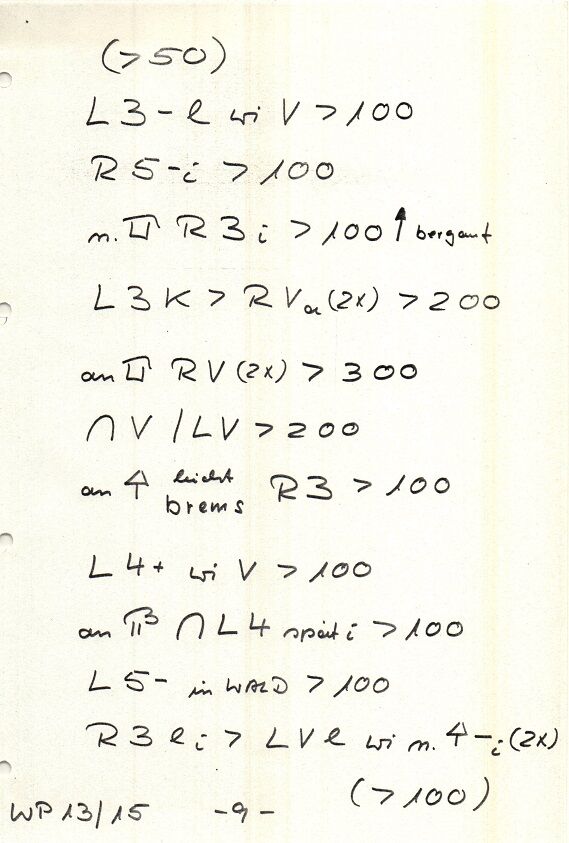 (>50)
L3-l wi V >100
R5-i >100
n. R3i >100 bergauf
L3K > RVa(2x) >200
an RV(2x) > 300
∩V/LV >200
an leicht brems R3 >100
L4+ wi V >100
an ∩L4 späti >100
L5- in WALD >100
R3li > LVl wi n. -i(2x)
(>100)
WP13/15 -9-